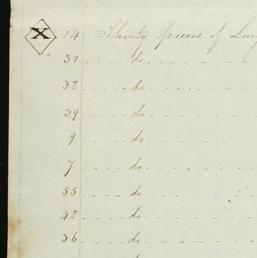 X 14 Thirty pieces of Long
31 do
32 do
39 do
9 do
7 do
55 do
42 do
36 do